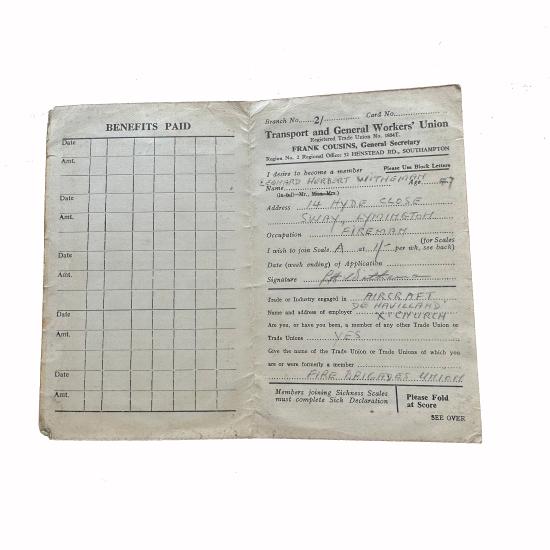 BENEFITS PAID
Date
Amt.
Date
Amt.
Date
Amt.
Date
Amt.
Date
Amt.
Branch No. 2/ Card No.
Transport and General Workers' Union
Registered Trade Union No. 1884T.
FRANK COUSINS, General Secretary
Region No. 2 Regional Office: 32 HENSTEAD RD., SOUTHAMPTON
I desire to become a member Please Use Block Letters
Name LEONARD HERBERT WITHEMAN Age 47
(in full—Mr., Miss, Mrs.)
Address 14 HYDE CLOSE
SWAY, LYMINGTON
Occupation FIREMAN
(for Scales
I wish to join Scale A at 1/- per wk, see back)
Date (week ending) of Application
Signature
Trade or Industry engaged in AIRCRAFT
Name and address of employer DE HAVILLAND
X CHURCH
Are you, or have you been, a member of any other Trade Union or
Trade Unions YES
Give the name of the Trade Union or Trade Unions of which you
are or were formerly a member
FIRE BRIGADES UNION
Members joining Sickness Scales
must complete Sick Declaration
Please Fold
at Score
SEE OVER